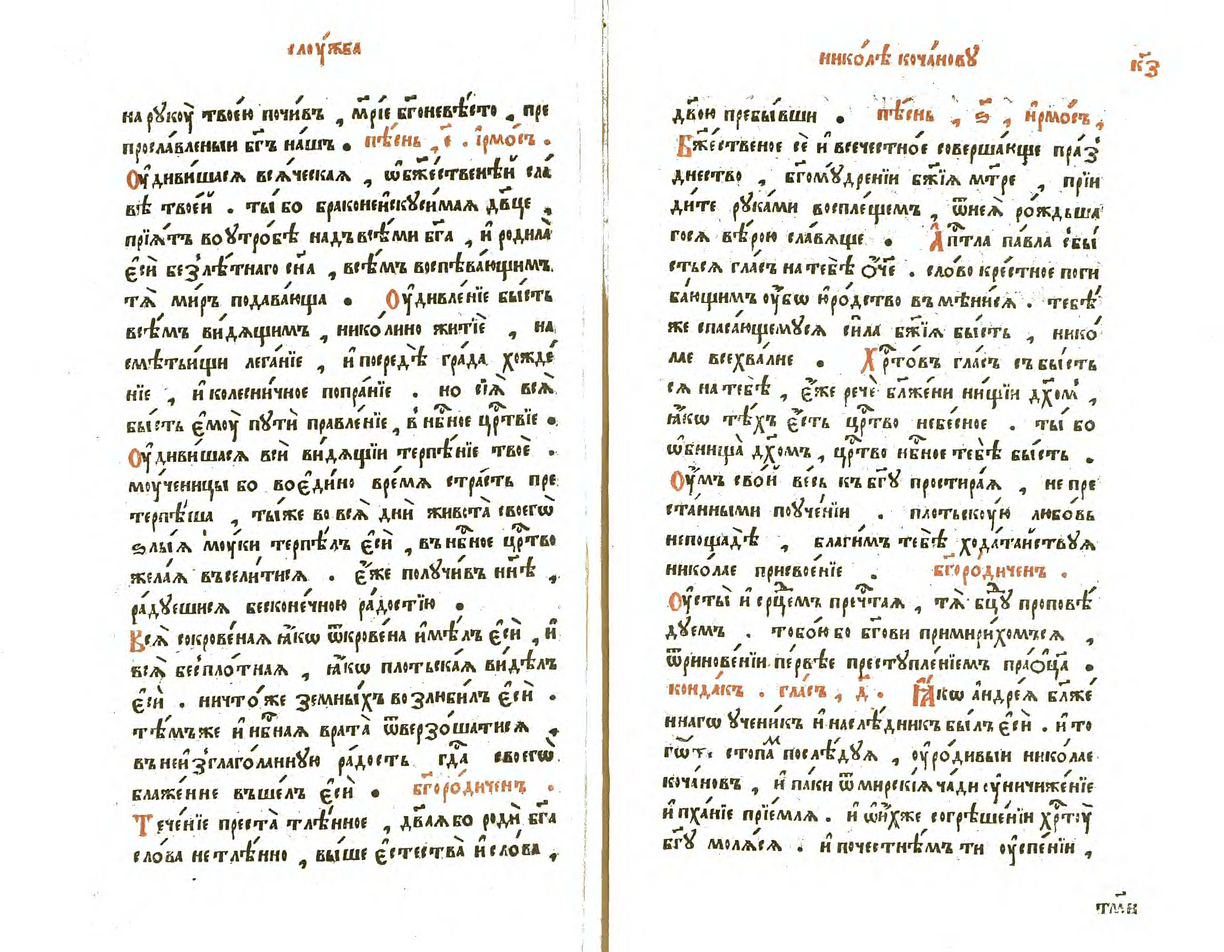 слоу́жба
на рукоу̀ твоею почи́въ , мр҃їе бг҃оневѣ́сто , пре
просла́вленыи бг҃ъ на́шъ . пѣ́снь , є҃ . їрмо́съ .
Оу҆диви́шася вся́ческая , ѡ҆бж҃ественѣ́й сла́
вѣ твое́й . ты́ бо браконеискуси́мая дв҃це ,
прїя́тъ во утро́бѣ надъ всѣ́ми бг҃а , и҆ родила̀
є҆сѝ безлѣ́тнаго сн҃а , всѣ́мъ воспѣва́ющимъ
тя̀ ми́ръ подава́юща . Оу҆дивле́нїе бы́сть
всѣ́мъ ви́дящимъ , нико́лино житїѐ , на
смѣ́тьищи лега́нїе , и҆ посредѣ̀ гра́да хожде́
нїе , и҆ колесни́чное попра́нїе . но сїя̀ вся̀
бы́сть є҆моу̀ пути́ правле́нїе , в нб҃ное цр҃твїе .
Оу҆диви́шася всѝ ви́дящїи терпѣ́нїе твоѐ .
моу́ченицы бо воєди́но вре́мя стра́сть пре
терпѣ́ша , ты́же во вся̀ днѝ живота̀ своегѡ̀
ѕлы́я моу́ки терпѣ́лъ є҆сѝ , въ нб҃ное цр҃тво
жела́я въсели́тися . є҆́же получи́в нн҃ѣ ,
ра́дуешися бесконе́чною ра́достїю .
Вся̀ сокрове́ная ꙗ҆́кѡ ѿкрове́на и҆мѣ́лъ є҆сѝ , и҆
вся̀ беспло́тная , ꙗ҆́кѡ пло́тьская ви́дѣлъ
є҆сѝ . ничто́же земны́хъ возлюби́лъ є҆сѝ .
тѣ́мъже и҆ нб҃ная врата̀ ѿверзо́шатися ,
въ неи́зглаго́ланную ра́дость гд҃а своегѡ̀
блаже́нне въше́лъ є҆сѝ . бг҃оро́диченъ .
Тече́нїе преста̀ тлѣ́нное , дв҃ая бо родѝ бг҃а
сло́ва нетлѣ́нно , вы́ше є҆стества̀ и҆ сло́ва ,
нико́лѣ коча́нову
к҃з
дв҃ою пребы́вши . пѣ́снь , ѕ҃ , и҆рмо́съ ,
Бж҃ественое сѐ и҆ всечестно́е соверша́юще пра́з
днество , бг҃ому́дренїи бж҃їя мт҃ре , прїи
ди́те рука́ми воспле́щемъ , ѿнея̀ ро́ждьша
гося вѣ́рою сла́вяще . А҆пт҃ла па́вла сбы́
сться гла́съ на тебѣ̀ о҆́ч҃е . сло́во кре́стное поги
ба́ющимъ оу҆́бѡ ю҆ро́дство въмѣ́нися . тебѣ́
же спаса́ющемуся си́ла бж҃їя бы́сть , нико́
лае всехва́лне . Хр҃то́въ гла́съ съ бы́сть
ся на тебѣ̀ , є҆́же речѐ бл҃же́ни ни́щїи дх҃о́м ,
ꙗ҆́кѡ тѣ́хъ є҆́сть цр҃тво небе́сное . ты́ бо
ѡ҆бнища̀ дх҃омъ , цр҃тво нб҃ное тебѣ̀ бы́сть .
Оу҆́мъ сво́й весь къ бг҃у простира́я , не пре
ста́нными поуче́нїи . плотьскоу́ю любо́вь
непощадѣ̀ , благи́мъ тебѣ̀ хода́тайствуя
нико́лае присвое́нїе . бг҃оро́диченъ .
Оу҆сты̀ и҆ срц҃емъ пречт҃ая , тя̀ бц҃у пропове́
дуемъ . тобо́ю бо бг҃ови примири́хомъся ,
ѿринове́нїи пе́рвѣе преступле́нїемъ прао҃ца̀ .
конда́къ . гла́съ , д҃ . Ꙗ҆́кѡ а҆ндре́я бл҃же́
ннагѡ учени́къ и҆ наслѣ́дникъ бы́лъ є҆сѝ . и҆ то
гѡ́ стопа́м послѣ́дуя , оу҆ро́дивыи нико́лае
коча́новъ , и҆ па́ки ѿ мирскі́я ча́ди оу҆ничиже́нїе
и҆ пха́нїе прїе́мля . и҆ ѡ҆ ни́хже согрѣше́нїи хр҃ту̀
бг҃у моля́ся . и҆ почестнѣ́мъ ти оу҆спе́нїи ,